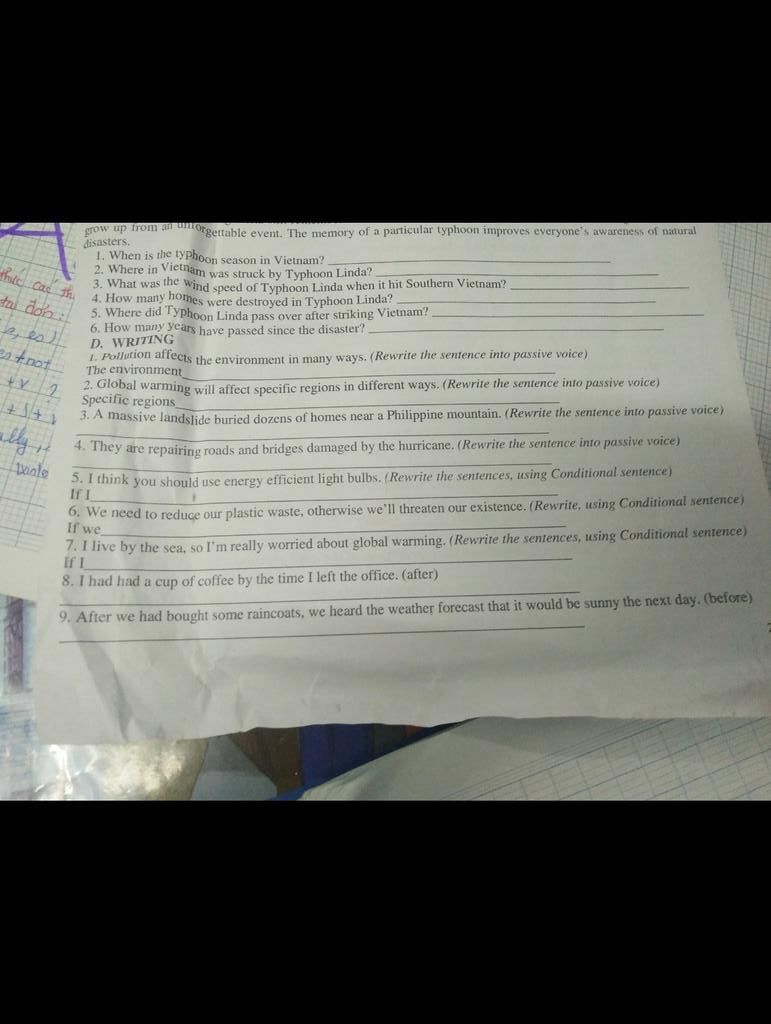 grow up from an unforgettable event. The memory of a particular typhoon improves everyone's awareness of natural
disasters.
1. When is the typhoon season in Vietnam?
2. Where in Vietnam was struck by Typhoon Linda?
3. What was the wind speed of Typhoon Linda when it hit Southern Vietnam?
4. How many homes were destroyed in Typhoon Linda?
5. Where did Typhoon Linda pass over after striking Vietnam?
6. How many years have passed since the disaster?
D. WRITING
1. Pollution affects the environment in many ways. (Rewrite the sentence into passive voice)
The environment
2. Global warming will affect specific regions in different ways. (Rewrite the sentence into passive voice)
Specific regions
3. A massive landslide buried dozens of homes near a Philippine mountain. (Rewrite the sentence into passive voice)
4. They are repairing roads and bridges damaged by the hurricane. (Rewrite the sentence into passive voice)
5. I think you should use energy efficient light bulbs. (Rewrite the sentences, using Conditional sentence)
If I
6. We need to reduce our plastic waste, otherwise we'll threaten our existence. (Rewrite, using Conditional sentence)
If we
7. I live by the sea, so I'm really worried about global warming. (Rewrite the sentences, using Conditional sentence)
If I
8. I had had a cup of coffee by the time I left the office. (after)
9. After we had bought some raincoats, we heard the weather forecast that it would be sunny the next day. (before)